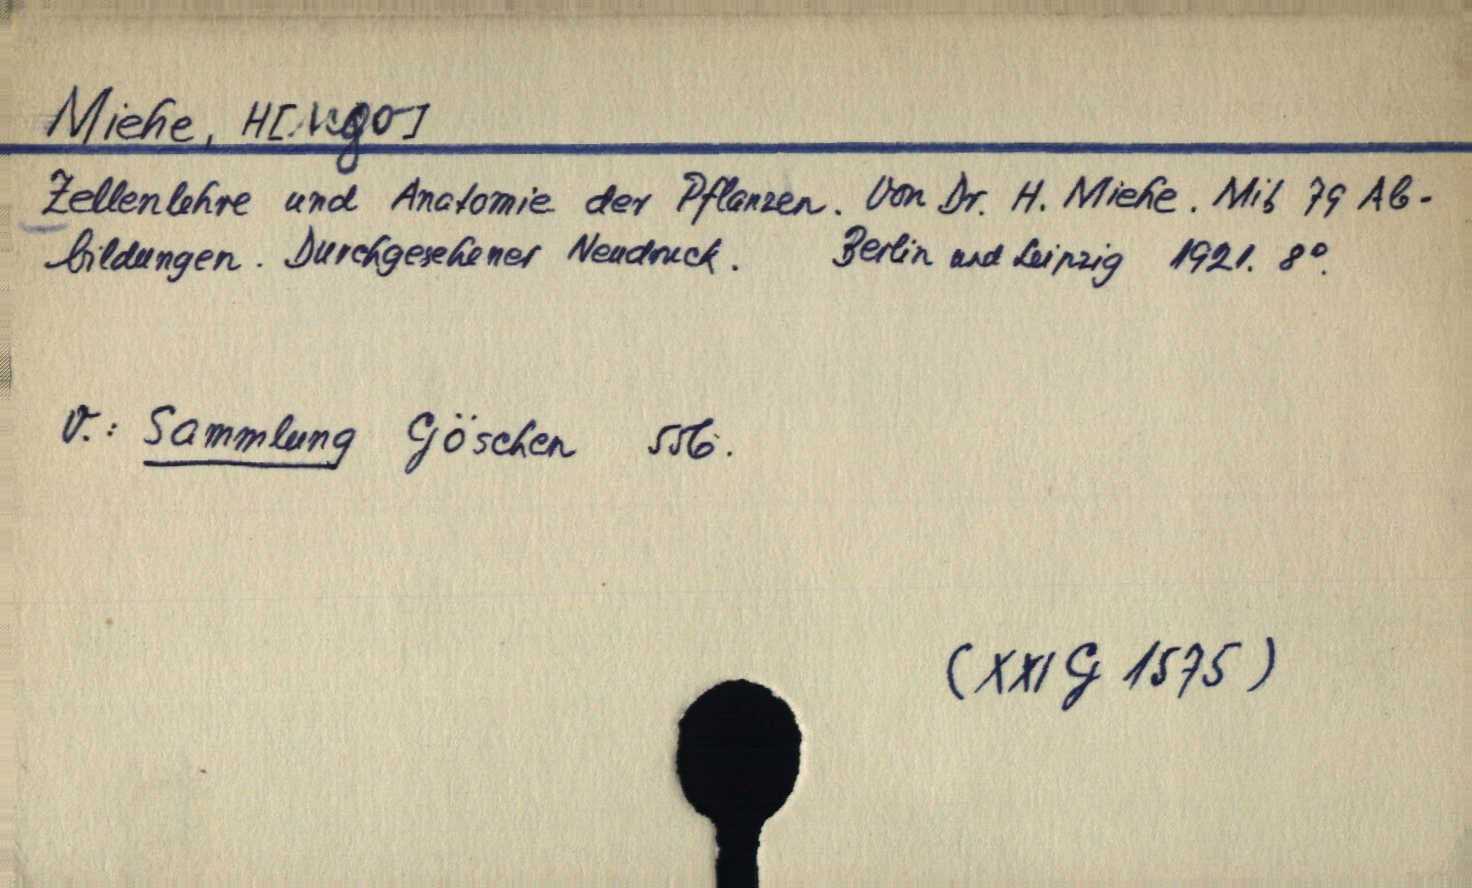 Miehe, H[ugo]
Zellenlehre und Anatomie der Pflanzen. Von Dr. H. Miehe. Mit 79 Ab-
bildungen. Durchgesehener Neudruck. Berlin und Leipzig 1921. 8°.
V.: Sammlung Göschen 556.
(XXI G 1575)